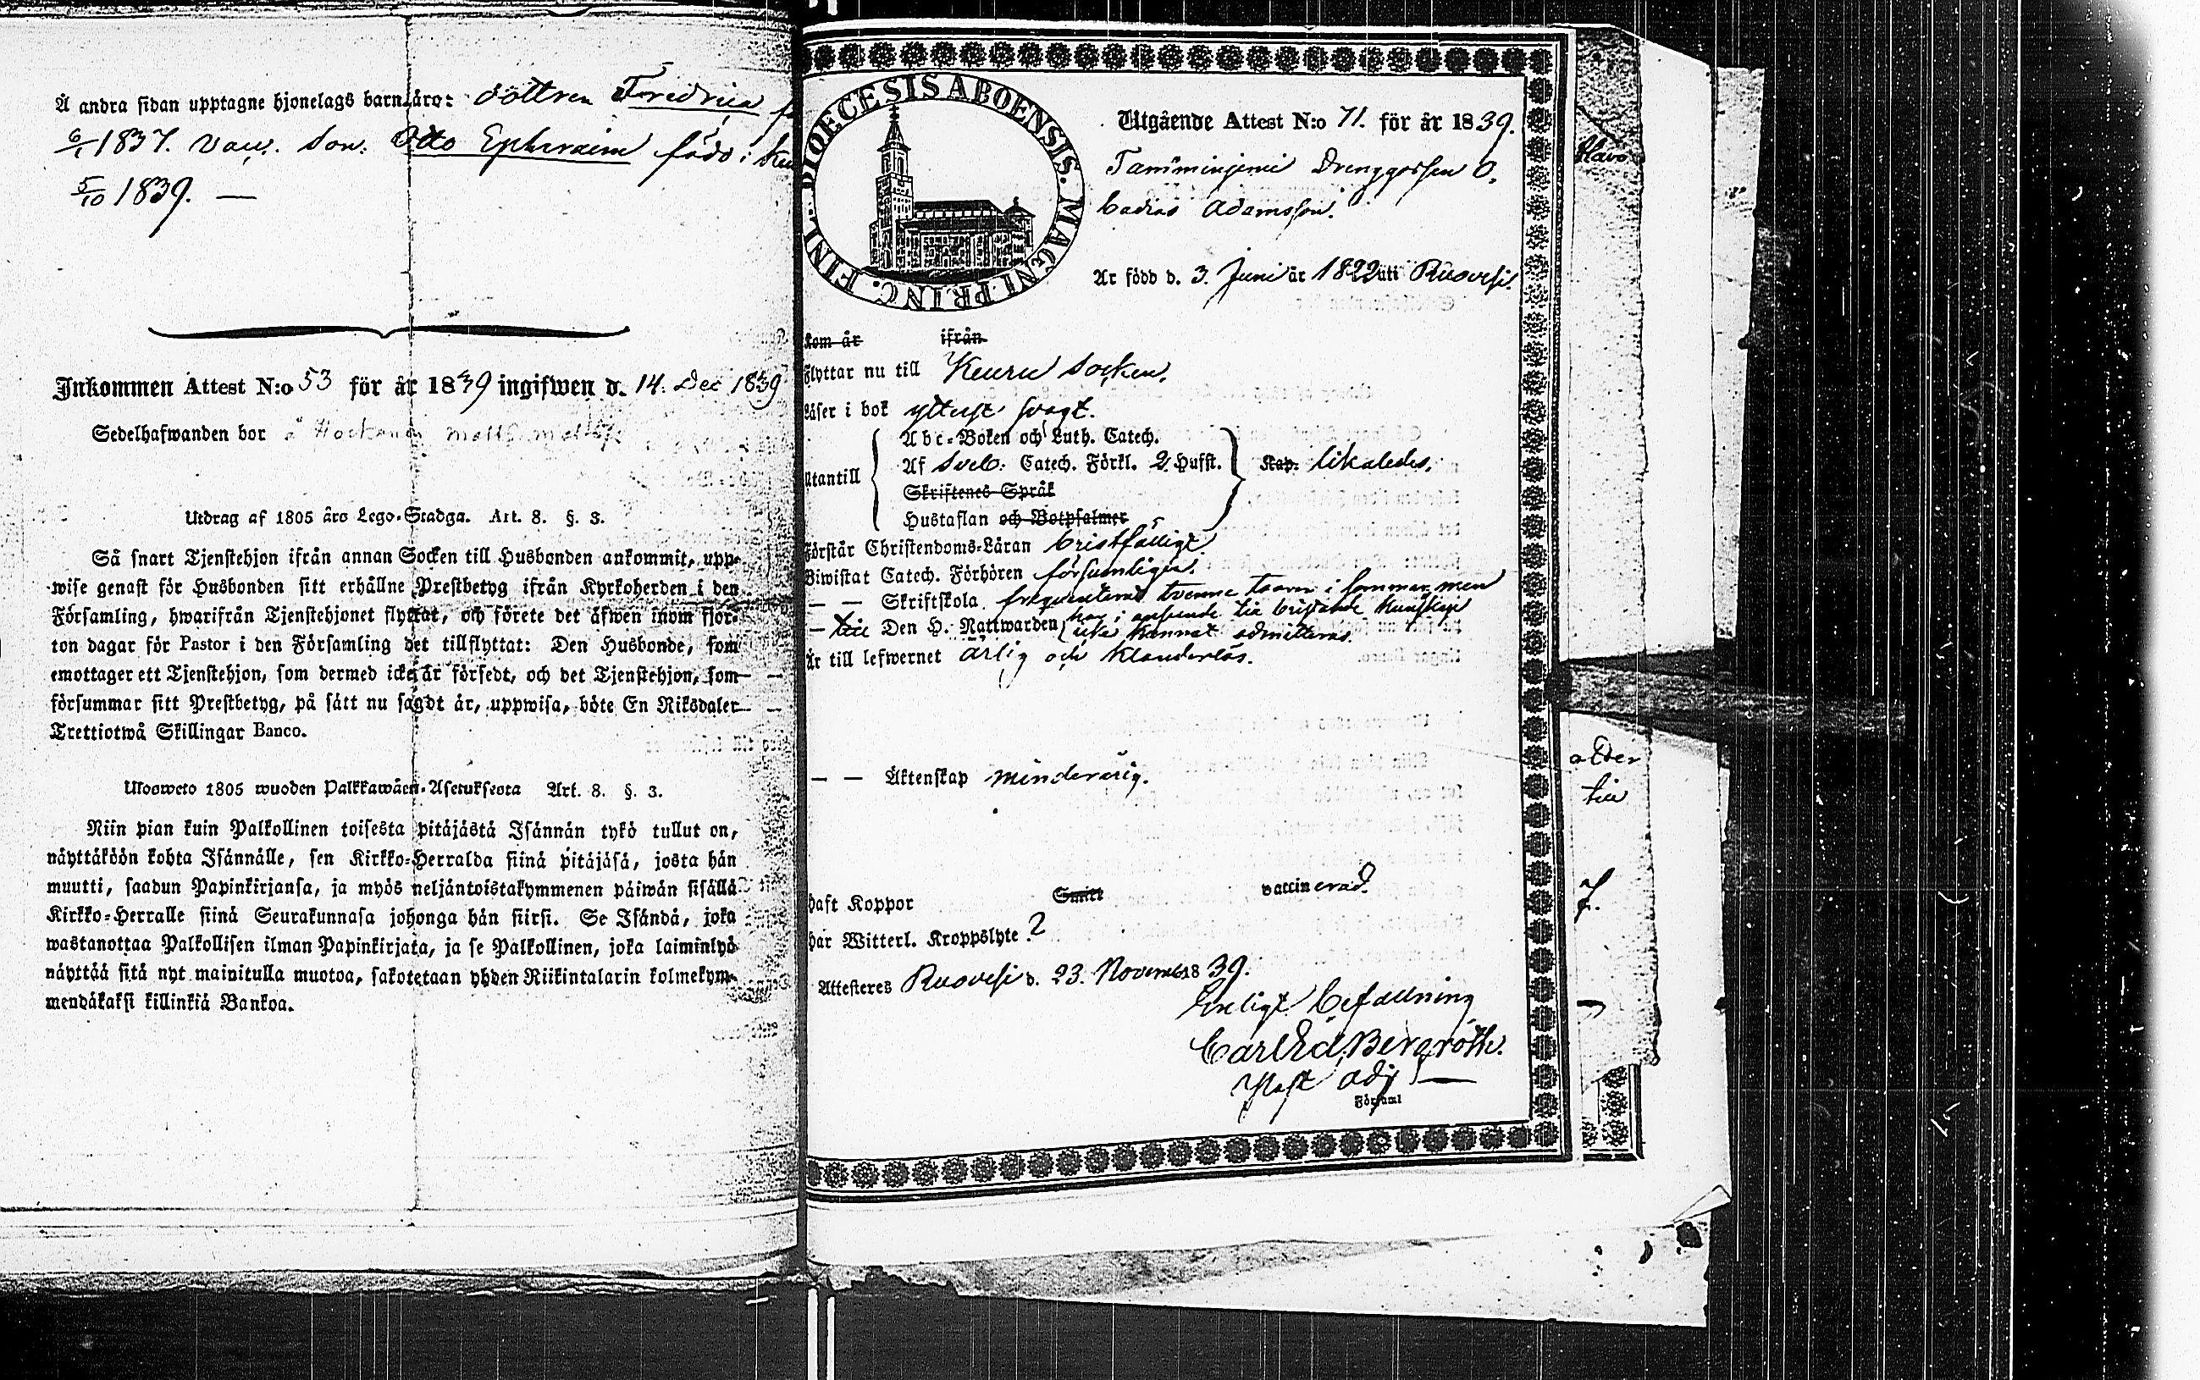 Å andra sidan upptagne hjonelags barn äro: dottren Fredrica
6/1 1837. Samt son. Otto Ephraim född i
5/10 1839. —
Inkommen Attest N:o 53 för år 1839 ingifwen d. 14. Dec 1839
Sedelhafwanden bor å
Utdrag af 1805 års Lego-Stadga. Art. 8. §. 3.
Så snart Tjenstehjon ifrån annan Socken till Husbonden ankommit, upp-
wise genast för Husbonden sitt erhållne Prestbetyg ifrån Kyrkoherden i den
Församling, hwarifrån Tjenstehjonet flyttat, och förete det äfwen inom fjor-
ton dagar för Pastor i den Församling det tillflyttat: Den Husbonde, som
emottager ett Tjenstehjon, som dermed icke är försedt, och det Tjenstehjon, som
försummar sitt Prestbetyg, på sätt nu sagdt är, uppwisa, böte En Riksdaler
Trettiotwå Skillingar Banco.
Ulosweto 1805 wuoden Palkkawäen-Asetuksesta Art. 8. §. 3.
Niin pian kuin Palkollinen toisesta pitäjästä Isännän tykö tullut on,
näyttäköön kohta Isännälle, sen Kirkko-Herralda siinä pitäjäsä, josta hän
muutti, saadun Papinkirjansa, ja myös neljäntoistakymmenen päiwän sisällä
Kirkko-Herralle siinä Seurakunnasa johonga hän siirsi. Se Isändä, joka
wastanottaa Palkollisen ilman Papinkirjata, ja se Palkollinen, joka laiminlyö
näyttää sitä nyt mainitulla muotoa, sakotetaan yhden Riikintalarin kolmekym-
mendäkaksi killinkiä Bankoa.
DIOECESIS ABOENSIS. MAGNI PRINC. FINL.
Utgående Attest N:o 71. för år 1839.
Tamminjemi Drenggossen C.
Adamsson.
Är född d. 3. Juni år 1822 uti Ruovesi.
kom år ifrån
Flyttar nu till Keuru Socken.
Läser i bok ytterst svagt.
Utantill
Abc-Boken och Luth. Catech.
Af Sveb. Catech. Förkl. 2. Hufst. Kap. likaledes.
Skriftenes Språk
Hustaflan och Botpsalmer
Förstår Christendoms-Läran bristfälligt.
Biwistat Catech. Förhören försumligen.
— — Skriftskola frequenterat tvenne i sommar, men
— till Den H. Nattwarden har i anseende till bristande kunskap
icke kunnat admitteras.
Är till lefwernet ärlig och klanderlös.
— — Äktenskap minderårig.
haft Koppor Smitt vaccinerad.
har Witterl. Kroppslyte ?
Attesteres Ruovesi d. 23. November 1839.
Enligt befallning
Carl Ed. Bergroth.
Past. adj.
Församl
ålder
till